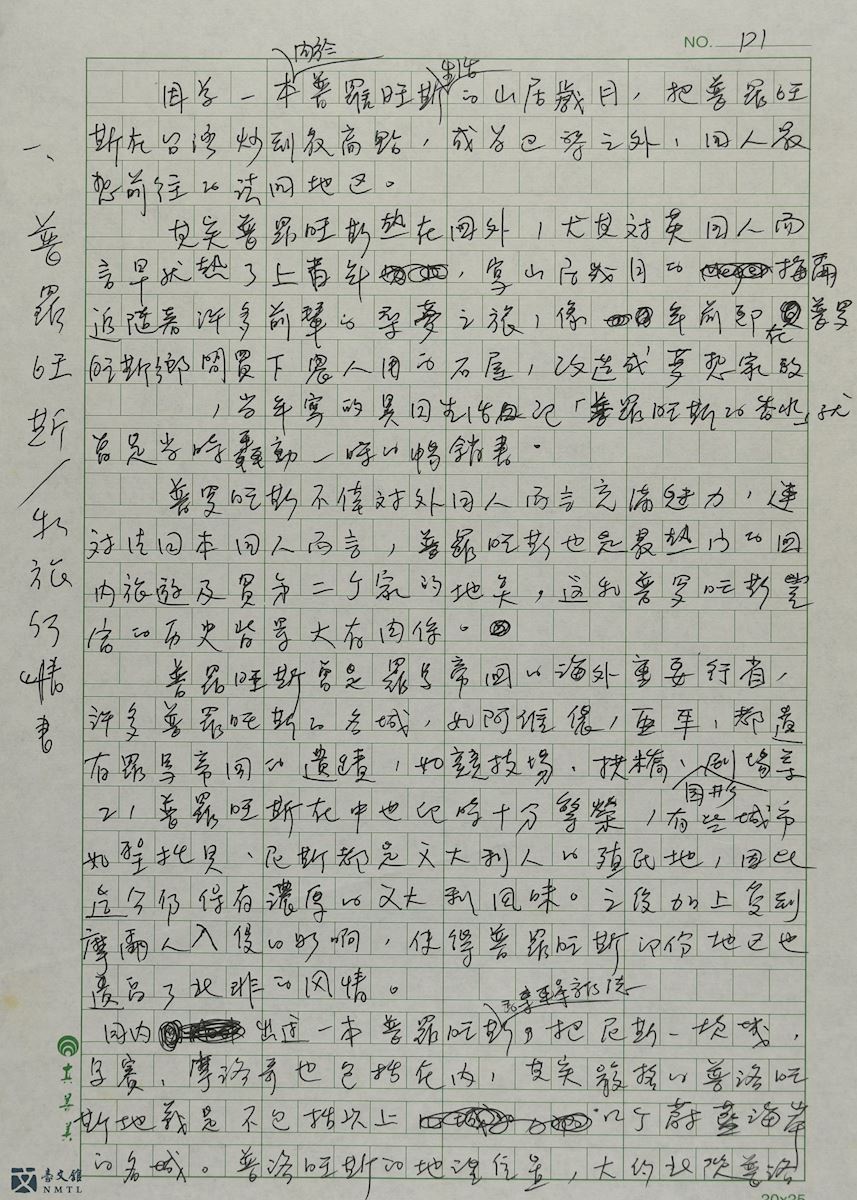 NO. 121
一、普羅旺斯/物旅行情書
關於 生活
因為一本普羅旺斯的山居歲月，把普羅旺
斯在台灣炒到最高點，成為巴黎之外，國人最
想前往的法國地区。
其实普羅旺斯熱在國外，尤其对英国人而
言早就熱了上百年，寫山居歲月的梅爾
追隨著许多前輩的尋夢之旅，像年前即在普罗
旺斯鄉間買下農人用的石屋，改造成夢想家
，当年寫的異国生活日记「普羅旺斯的香水」就
曾是当時轟動一時的暢銷書。
普罗旺斯不僅对外国人而言充滿魅力，連
对法国本国人而言，普羅旺斯也是最热门的国
内旅遊及買第二个家的地點，这和普罗旺斯豐
富的历史背景大有関係。
普羅旺斯曾是羅馬帝国的海外重要行省，
許多普羅旺斯的名城，如阿維儂，亚耳，都遺
有羅馬帝国的遺蹟，如競技場、拱橋、圓形劇場等
，普羅旺斯在中世纪時十分繁榮，有些城市
如聖、尼斯都是义大利人的殖民地，因此
迄今仍保有濃厚的义大利風味。之後加上受到
摩爾人入侵的影响，使得普羅旺斯部份地区也
遺留了北非的风情。
国内出过一本普羅旺斯，把尼斯、坎城、
、摩洛哥也包括在内，其实最的普洛旺
斯地載是不包括以上蔚藍海岸
的名城。普洛旺斯的地理位置，大約北從普洛
台文館
NMTL
20×25